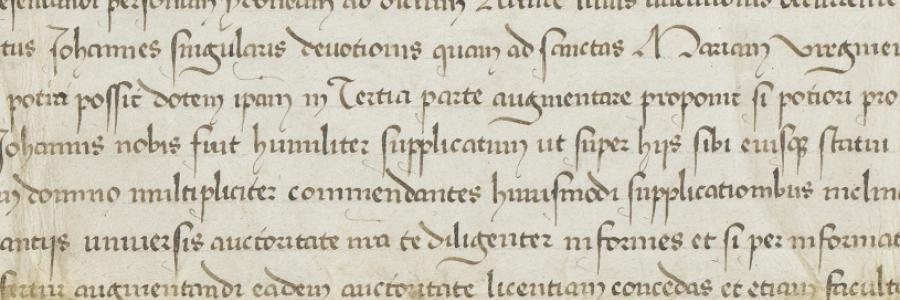 personam ydoneam ad dictam
tus Johannes singularis deuotionis quam ad sanctas Mariam Virginem
potia possit dotem ipam in Tertia parte augmentare proponit si potiori pro
Johannis nobis fuit humiliter supplicatum ut super hijs sibi eiusq statui
in domino multipliciter commendantes huiusmodi supplicationibus inclin
antijs uniuersis auctoritate nra te diligenter informes et si per informat
augmentandi eadem auctoritate licentiam concedas et etiam faculta